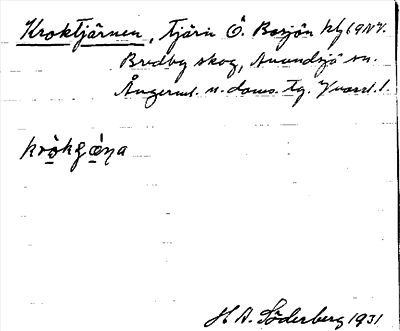 Kroktjärnen, tjärn Ö. Borsjön kbl 69NV.
Bredby skog, Anundsjö sn.
Ångerml. n. doms. tg. Y
kròkgä́ɳa
H A. Söderberg 1931